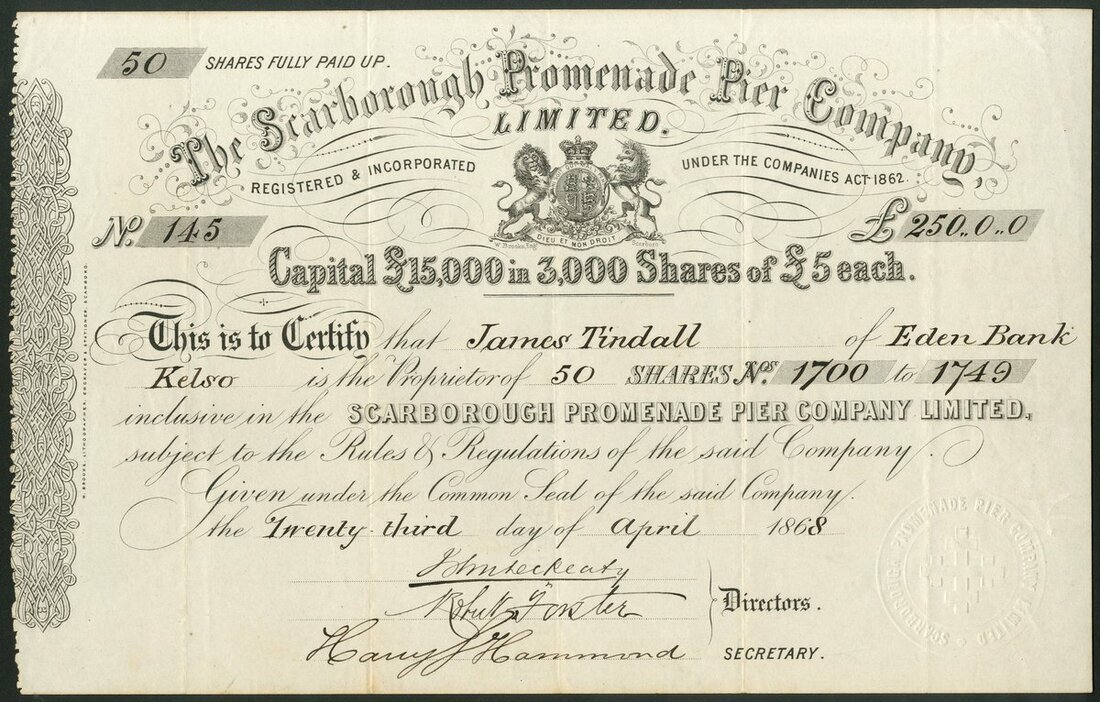 50 SHARES FULLY PAID UP.
The Scarborough Promenade Pier Company,
LIMITED.
REGISTERED & INCORPORATED UNDER THE COMPANIES ACT 1862.
DIEU ET MON DROIT
W. Brooks, Scarboro
No. 145 £250..0..0
Capital £15,000 in 3,000 Shares of £5 each.
This is to Certify that James Tindall of Eden Bank
Kelso is the Proprietor of 50 SHARES Nos. 1700 to 1749
inclusive in the SCARBOROUGH PROMENADE PIER COMPANY LIMITED,
subject to the Rules & Regulations of the said Company.
Given under the Common Seal of the said Company.
the Twenty-third day of April 1868
Robert Forster
Directors.
Harry J Hammond SECRETARY.
SCARBOROUGH PROMENADE PIER COMPANY LIMITED
W. BROOKS, LITHOGRAPHER, ENGRAVER & STATIONER, SCARBORO.